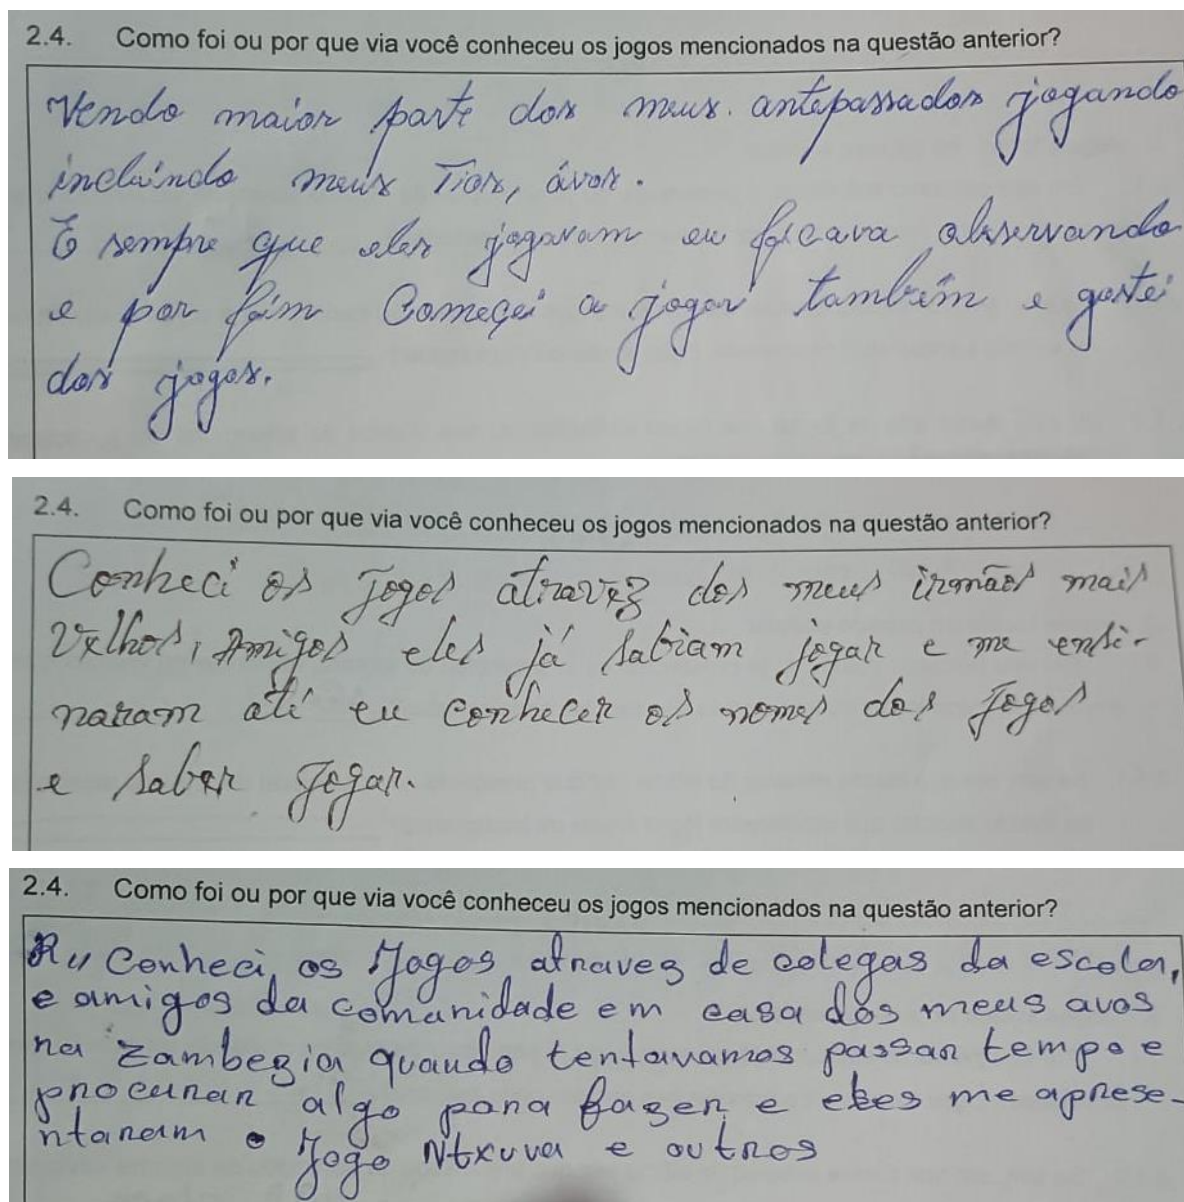 2.4. Como foi ou por que via você conheceu os jogos mencionados na questão anterior?
Vendo maior parte dos meus. antepassados jogando
incluindo meus Tios, ávos.
E sempre que eles jogavam eu ficava observando
e por fim Começei a jogar também e gostei
dos jogos.
2.4. Como foi ou por que via você conheceu os jogos mencionados na questão anterior?
Conheci os Jogos atravéz dos meus irmãos mais
Velhos, Amigos eles já sabiam jogar e me ensi-
naram até eu conhecer os nomes dos Jogos
e saber Jogar.
2.4. Como foi ou por que via você conheceu os jogos mencionados na questão anterior?
R// Conheci, os Jogos, atravez de colegas da escola,
e amigos da comunidade em casa dos meus avos
na Zambezia quando tentavamos passar tempo e
procurar algo para fazer e eles me aprese-
ntaram o Jogo Ntxuva e outros